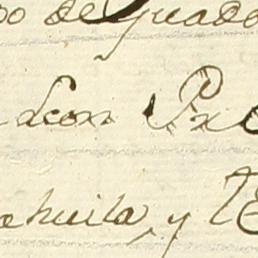 po de Guada
Leon Pro
ahuila, y Te